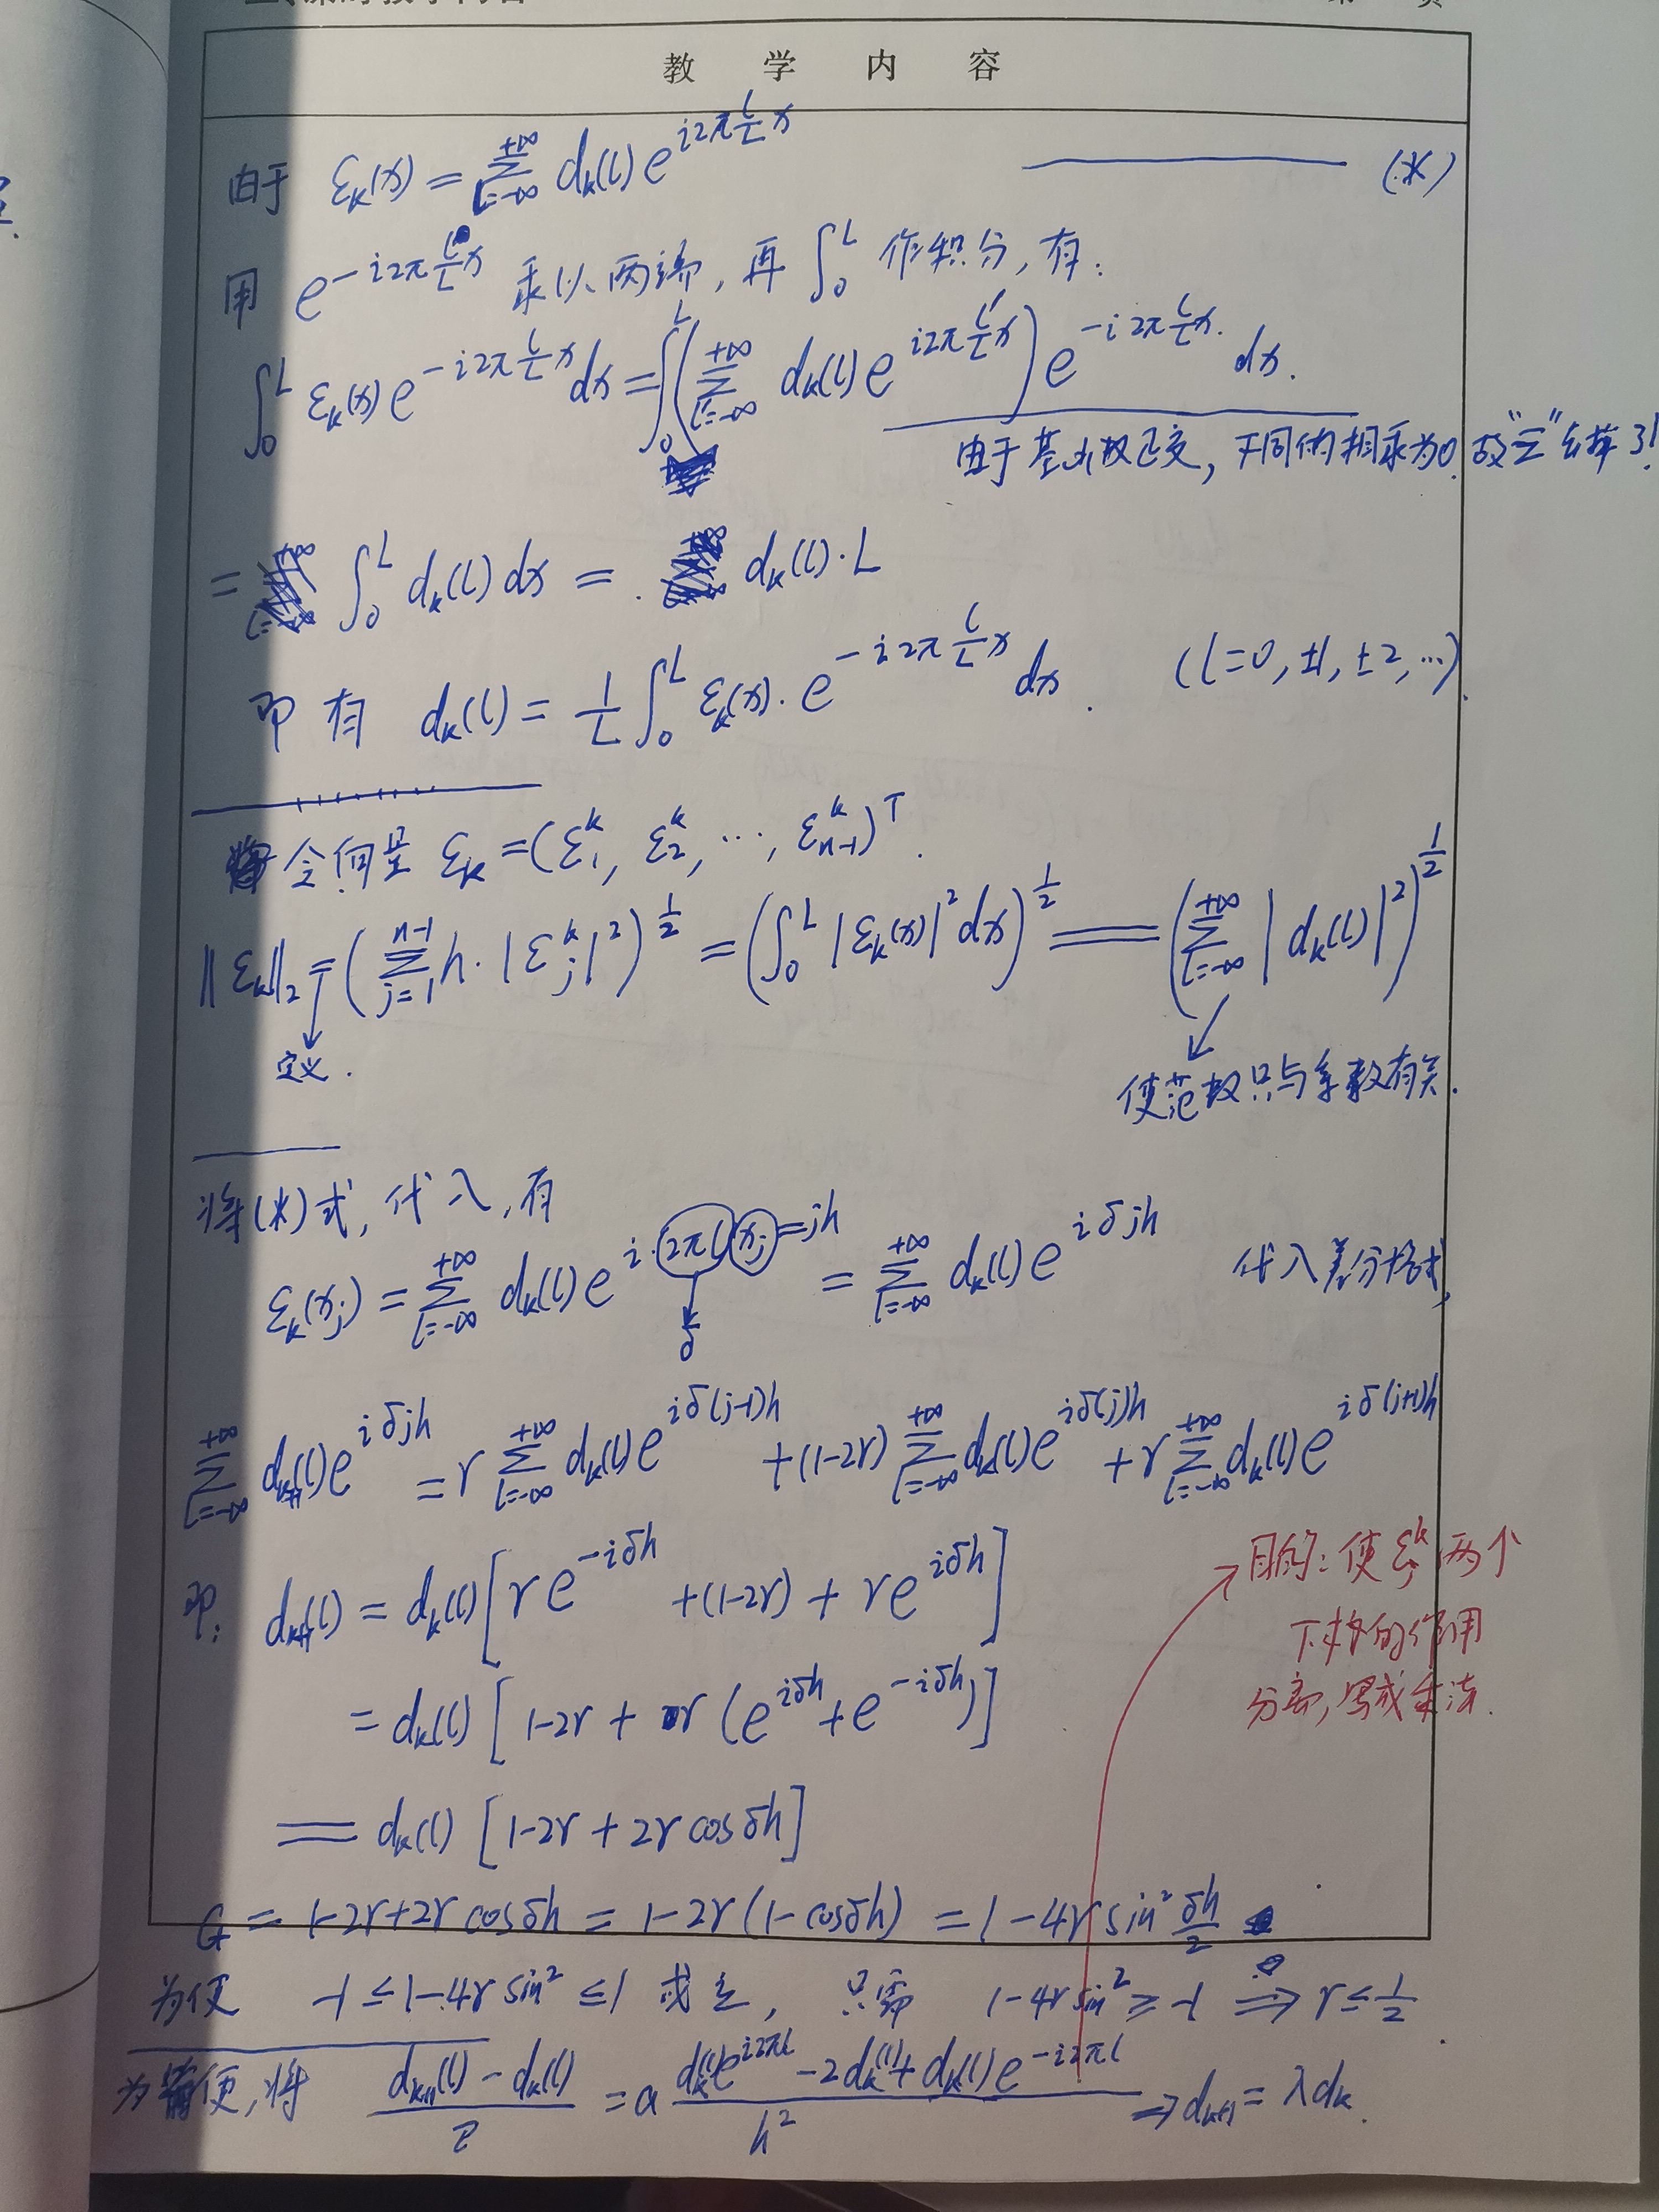 教 学 内 容
由于 ε_k(x) = Σ_{l=-∞}^{+∞} d_k(l) e^{i2π\frac{l}{L}x} ——— (*)
用 e^{-i2π\frac{l}{L}x} 乘以两端, 再 ∫_0^L 作积分, 有:
∫_0^L ε_k(x) e^{-i2π\frac{l}{L}x} dx = ∫_0^L (Σ_{l'=-∞}^{+∞} d_k(l) e^{i2π\frac{l'}{L}x}) e^{-i2π\frac{l}{L}x} dx.
由于基函数正交, 不同的相乘为0, 故“Σ”去掉了!
= ∫_0^L d_k(l) dx = d_k(l)·L
即有 d_k(l) = \frac{1}{L} ∫_0^L ε_k(x)· e^{-i2π\frac{l}{L}x} dx. (l=0, ±1, ±2, ...).
令向量 ε_k = (ε_1^k, ε_2^k, ..., ε_{n-1}^k)^T.
||ε_k||_2 = (Σ_{j=1}^{n-1} h·|ε_j^k|^2)^{\frac{1}{2}} = (∫_0^L |ε_k(x)|^2 dx)^{\frac{1}{2}} = (Σ_{l=-∞}^{+∞} |d_k(l)|^2)^{\frac{1}{2}}
定义.
使范数只与系数有关.
将(*)式, 代入, 有
ε_k(x_j) = Σ_{l=-∞}^{+∞} d_k(l) e^{i·2πl x_j=jh} = Σ_{l=-∞}^{+∞} d_k(l) e^{iδjh} 代入差分格式,
δ
Σ_{l=-∞}^{+∞} d_{k+1}(l) e^{iδjh} = r Σ_{l=-∞}^{+∞} d_k(l) e^{iδ(j-1)h} + (1-2r) Σ_{l=-∞}^{+∞} d_k(l) e^{iδ(j)h} + r Σ_{l=-∞}^{+∞} d_k(l) e^{iδ(j+1)h}
即: d_{k+1}(l) = d_k(l) [r e^{-iδh} + (1-2r) + r e^{iδh}]
目的: 使 ε_j^k 两个
下标的作用
分离, 写成乘法.
= d_k(l) [1-2r + r (e^{iδh} + e^{-iδh})]
= d_k(l) [1-2r + 2r cosδh]
G = 1-2r+2r cosδh = 1-2r(1-cosδh) = 1-4r sin^2 \frac{δh}{2}
为使 -1 ≤ 1-4r sin^2 ≤ 1 成立, 只需 1-4r sin^2 ≥ -1 ⇒ r ≤ \frac{1}{2}.
为简便, 将 \frac{d_{k+1}(l) - d_k(l)}{τ} = a \frac{d_k(l) e^{i2πl} - 2d_k(l) + d_k(l) e^{-i2πl}}{h^2} ⇒ d_{k+1} = λ d_k.